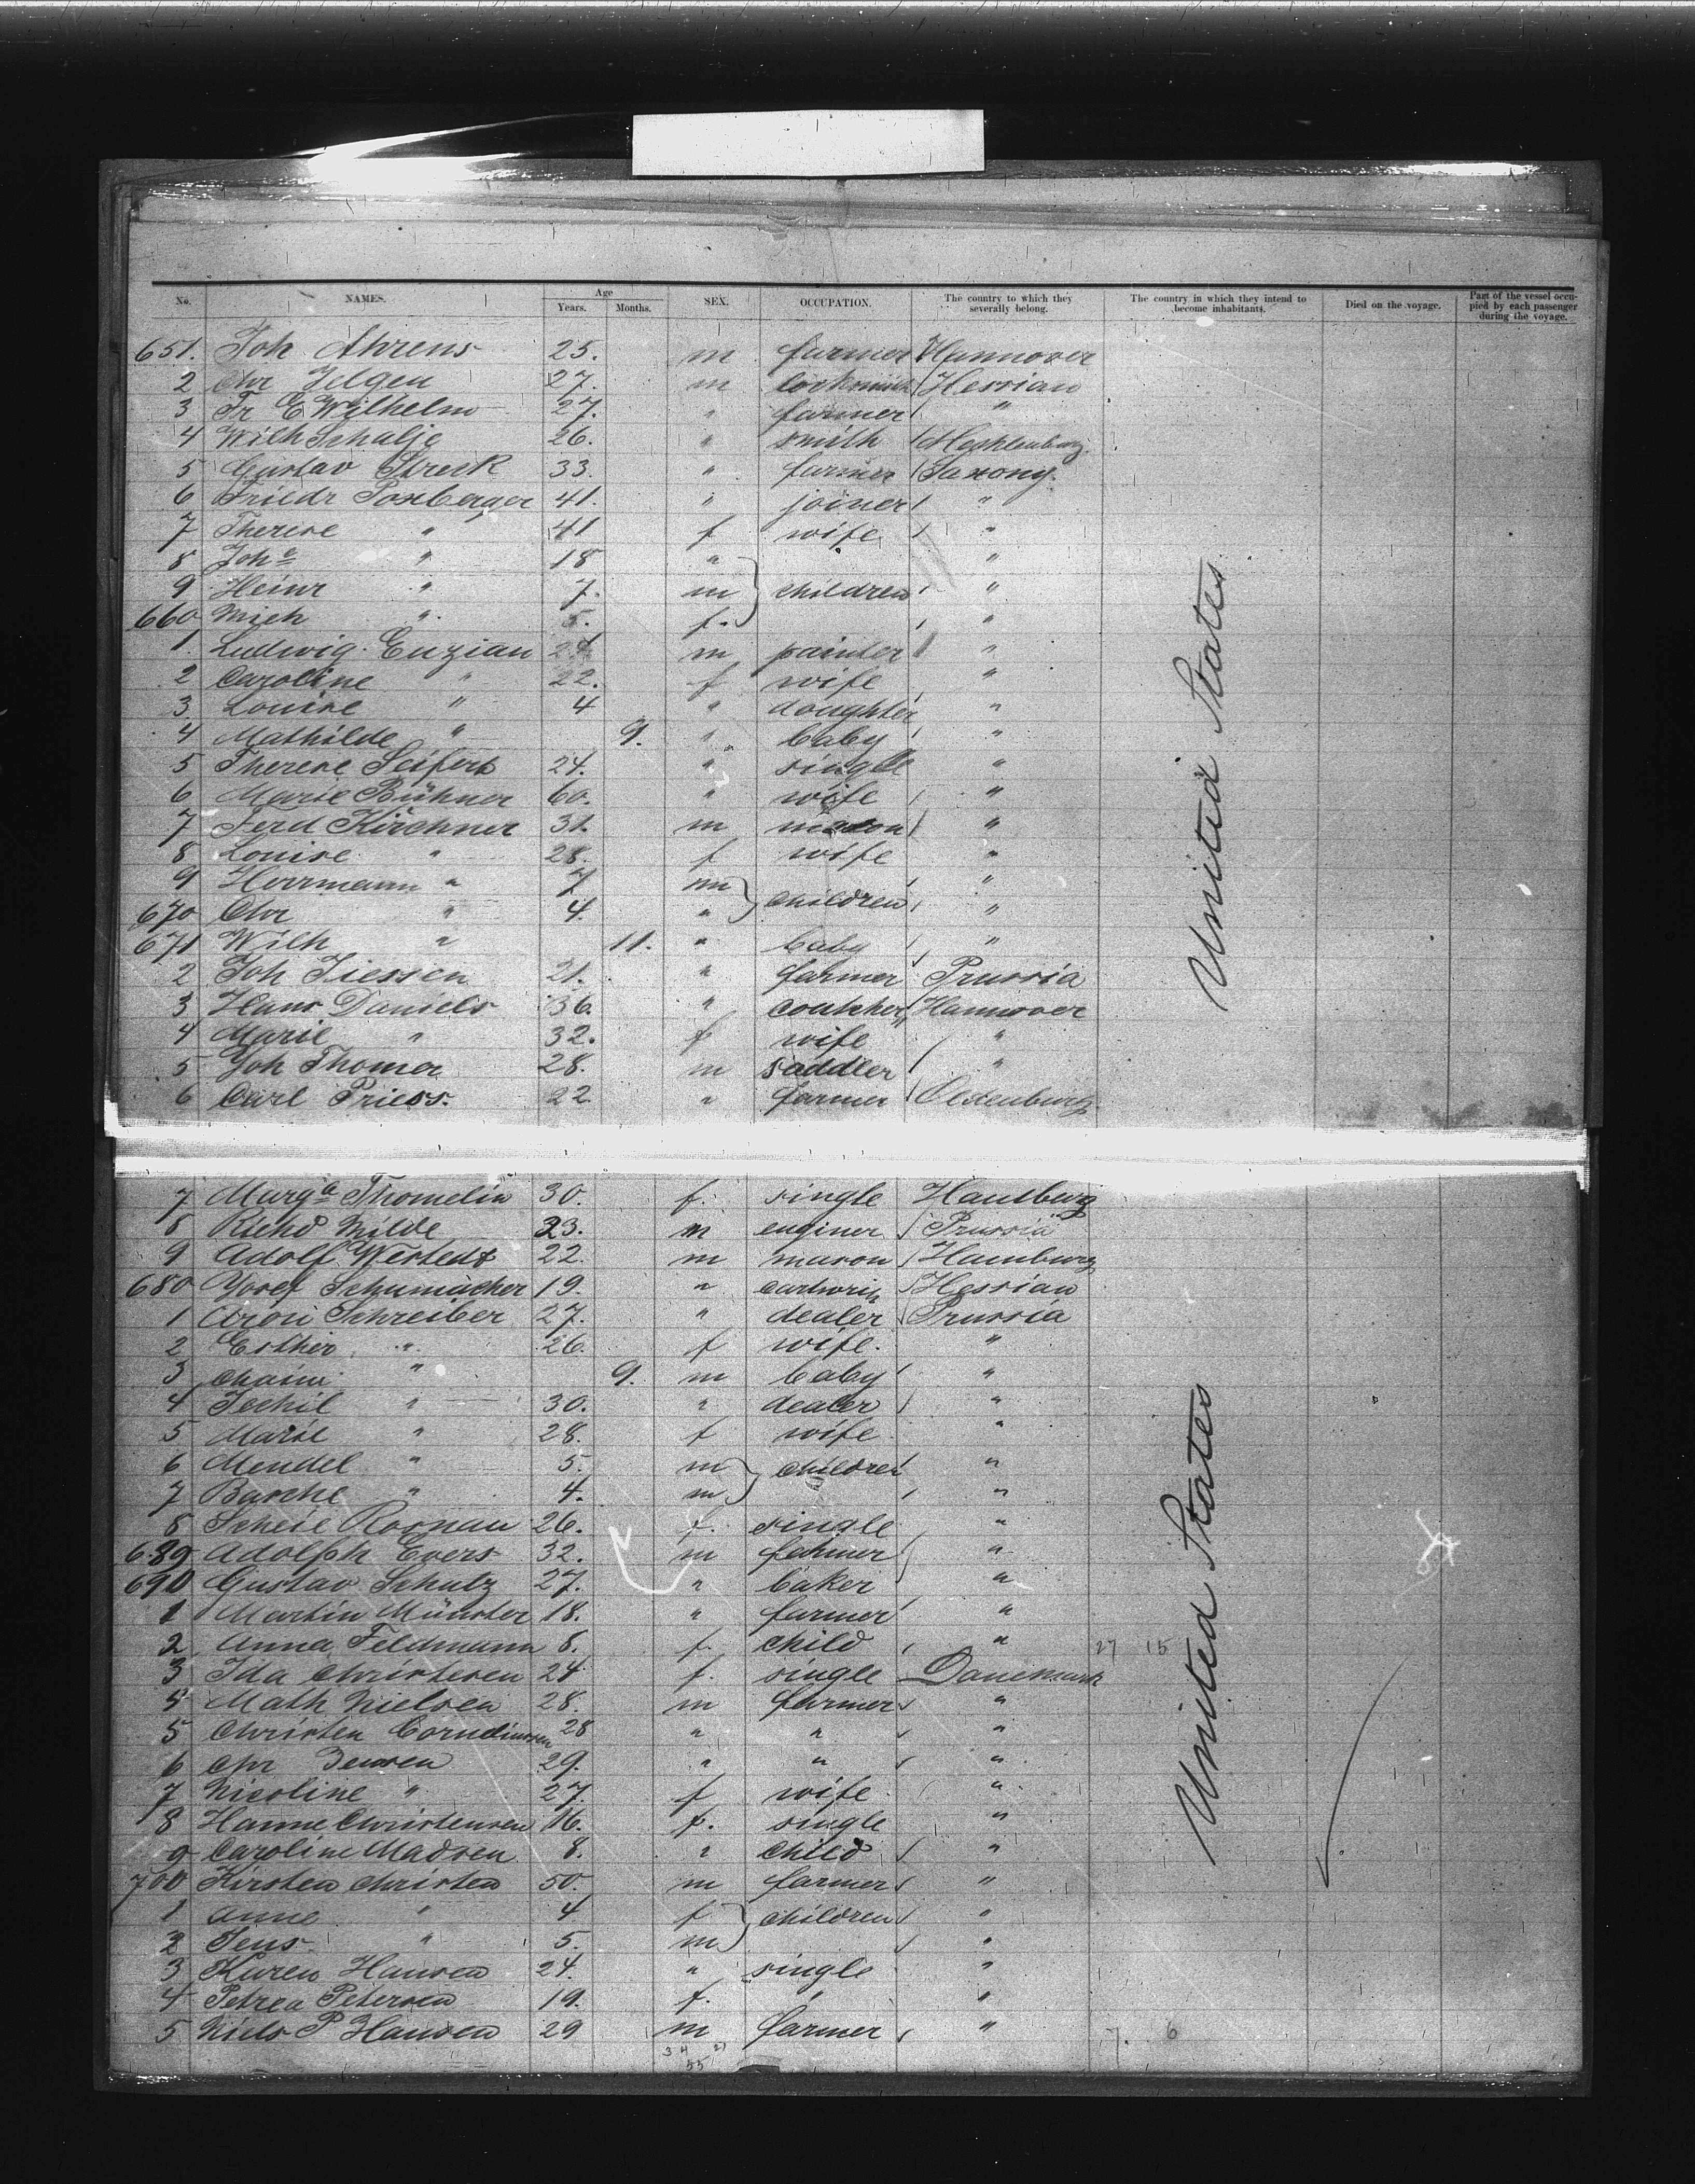 No. NAMES. Age Years. Months. SEX. OCCUPATION. The country to which they severally belong. The country in which they intend to become inhabitants. Died on the voyage. Part of the vessel occupied by each passenger during the voyage.
651. Joh Ahrens 25. m farmer Hannover
2 Chr Jelgen 27. m locksmith Hessian
3 Fr C Wilhelm 27. " farmer "
4 Wilh Schalje 26. " smith Mecklenburg
5 Gustav Streck 33. " farmer Saxony.
6 Friedr Poxberger 41. " joiner "
7 Therese " 41 f wife "
8 Joha " 18 " "
9 Heinr " 7. m children "
660 Mich " 5. f. "
1. Ludwig Enzian 24 m painter "
2 Caroline " 22. f wife "
3 Louise " 4 " doughter "
4 Mathilde " 9. " baby "
5 Therese Seifert 24. " single "
6 Marie Bühner 60. " wife "
7 Ferd Kirchner 31. m mason "
8 Louise " 28. f wife "
9 Herrmann " 7 m children "
670 Chr " 4. " "
671 Wilh " 11. " baby "
2 Joh Tiessen 21. " farmer Prussia
3 Hans Daniels 36. " coatcher Hannover
4 Marie " 32. f wife "
5 Joh Thomer 28. m saddler "
6 Carl Priess. 22. " farmer Oldenburg.
United States
7 Marga Thomelin 30. f. single Hamburg
8 Richd Milde 23. m enginer Prussia
9 Adolf Westedt 22 m mason Hamburg
680 Josef Schumacher 19. " cartwrih Hessian
1 Aron Schreiber 27. " dealer Prussia
2 Esther " 26. f wife. "
3 Chaim " 9. m baby "
4 Jechil " 30. " dealer "
5 Marie " 28. f wife "
6 Mendel " 5. m children "
7 Basche " 4. m "
8 Scheie Rosnau 26. f. single "
689 Adolph Evers 32. m farmer "
690 Gustav Schulz 27. " baker "
1 Martin Münster 18. " farmer "
2 Anna Feldmann 8. f. child " 27 15
3 Ida Christesen 24 f. single Danemark
4 Math Nielsen 28. m farmer "
5 Christen Cornelinssen 28 " " "
6 Chr Jensen 29. " " "
7 Nicoline " 27. f wife "
8 Hanne Christensen 16. f. single "
9 Caroline Madsen 8. " child "
700 Kirsten Christen 50. m farmer "
1 Anne " 4 f children "
2 Jens " 5. m "
3 Karen Hansen 24. " single "
4 Petrea Petersen 19. f. "
5 Niels P Hansen 29 m farmer " 7. 6
34 21
55
United States